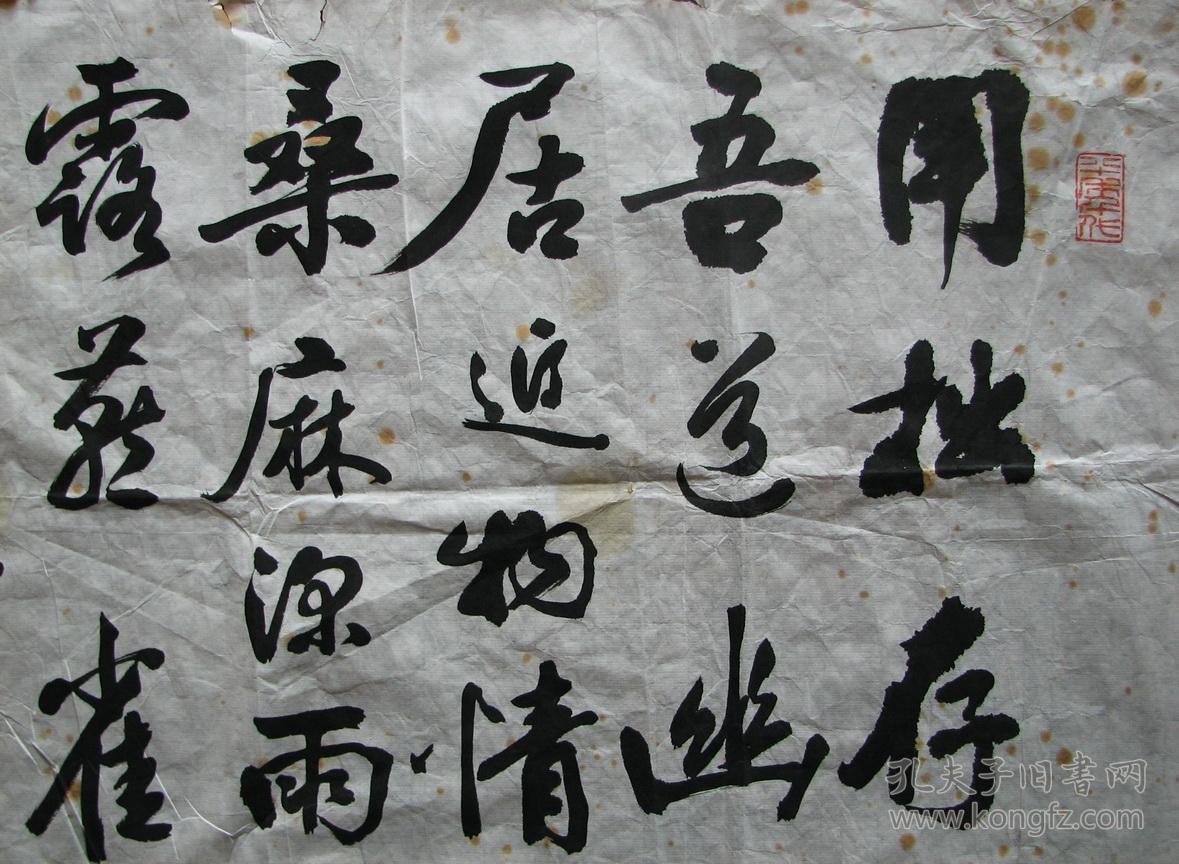 用拙存
吾道幽
居近物情
桑麻深雨
露燕雀
孔夫子旧书网
www.kongfz.com